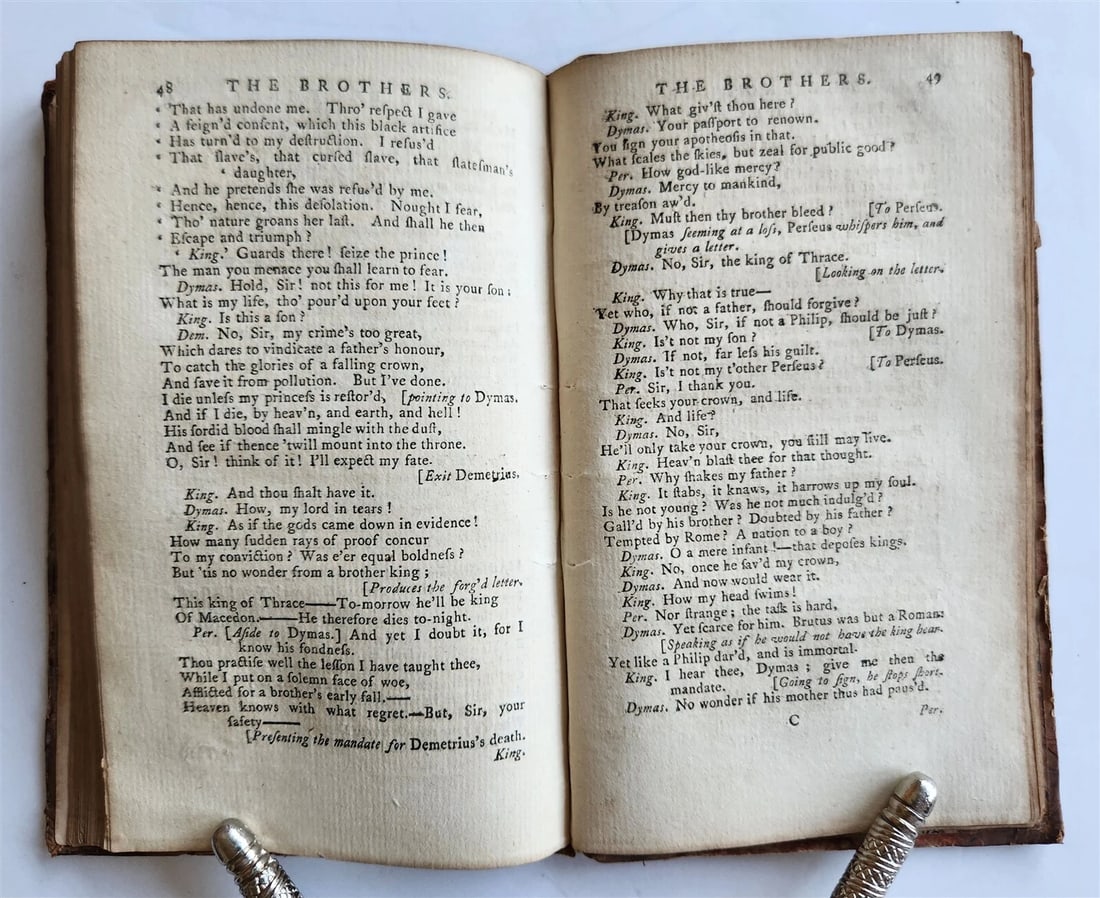 48 THE BROTHERS.
‘ That has undone me. Thro' reſpect I gave
‘ A feign'd conſent, which this black artifice
‘ Has turn'd to my deſtruction. I refus'd
‘ That ſlave's, that curſed ſlave, that ſtateſman's
‘ daughter,
‘ And he pretends ſhe was refus'd by me.
‘ Hence, hence, this deſolation. Nought I fear,
‘ Tho' nature groans her laſt. And ſhall he then
‘ Eſcape and triumph?
‘ King.’ Guards there! ſeize the prince!
The man you menace you ſhall learn to fear.
Dymas. Hold, Sir! not this for me! It is your ſon;
What is my life, tho' pour'd upon your feet?
King. Is this a ſon?
Dem. No, Sir, my crime's too great,
Which dares to vindicate a father's honour,
To catch the glories of a falling crown,
And ſave it from pollution. But I've done.
I die unleſs my princeſs is reſtor'd, [pointing to Dymas.
And if I die, by heav'n, and earth, and hell!
His ſordid blood ſhall mingle with the duſt,
And ſee if thence 'twill mount into the throne.
O, Sir! think of it! I'll expect my fate.
[Exit Demetrius.
King. And thou ſhalt have it.
Dymas. How, my lord in tears!
King. As if the gods came down in evidence!
How many ſudden rays of proof concur
To my conviction? Was e'er equal boldneſs?
But 'tis no wonder from a brother king;
[Produces the forg'd letter.
This king of Thrace——To-morrow he'll be king
Of Macedon.——He therefore dies to-night.
Per. [Aſide to Dymas.] And yet I doubt it, for I
know his fondneſs.
Thou practiſe well the leſſon I have taught thee,
While I put on a ſolemn face of woe,
Afflicted for a brother's early fall.——
Heaven knows with what regret.—But, Sir, your
ſafety——
[Preſenting the mandate for Demetrius's death.
King.
THE BROTHERS. 49
King. What giv'ſt thou here?
Dymas. Your paſſport to renown.
You ſign your apotheoſis in that.
What ſcales the ſkies, but zeal for public good?
Per. How god-like mercy?
Dymas. Mercy to mankind,
By treaſon aw'd.
King. Muſt then thy brother bleed? [To Perſeus.
[Dymas ſeeming at a loſs, Perſeus whiſpers him, and
gives a letter.
Dymas. No, Sir, the king of Thrace.
[Looking on the letter.
King. Why that is true—
Yet who, if not a father, ſhould forgive?
Dymas. Who, Sir, if not a Philip, ſhould be juſt?
King. Is't not my ſon? [To Dymas.
Dymas. If not, far leſs his guilt.
King. Is't not my t'other Perſeus? [To Perſeus.
Per. Sir, I thank you.
That ſeeks your crown, and life.
King. And life?
Dymas. No, Sir,
He'll only take your crown, you ſtill may live.
King. Heav'n blaſt thee for that thought.
Per. Why ſhakes my father?
King. It ſtabs, it knaws, it harrows up my ſoul.
Is he not young? Was he not much indulg'd?
Gall'd by his brother? Doubted by his father?
Tempted by Rome? A nation to a boy?
Dymas. O a mere infant!—that depoſes kings.
King. No, once he ſav'd my crown,
Dymas. And now would wear it.
King. How my head ſwims!
Per. Nor ſtrange; the taſk is hard,
Dymas. Yet ſcarce for him. Brutus was but a Roman:
[Speaking as if he would not have the king hear.
Yet like a Philip dar'd, and is immortal.
King. I hear thee, Dymas; give me then the
mandate. [Going to ſign, he ſtops ſhort.
Dymas. No wonder if his mother thus had paus'd.
C Per.